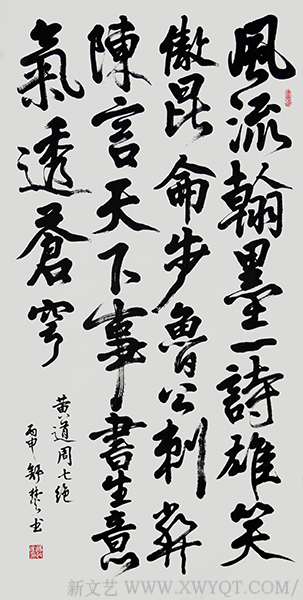 風流翰墨一詩雄笑
傲昆侖步魯公刺弊
陳言天下事書生意
氣透蒼穹
黄道周七絕
丙申 书
新文艺 WWW.XWYQT.COM